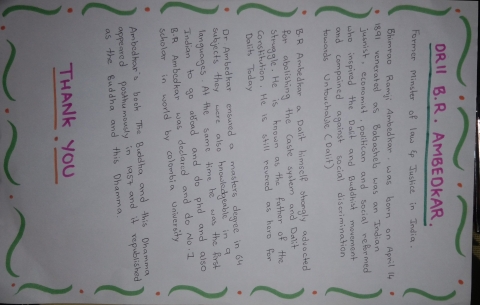 DR || B.R. AMBEDKAR
Former Minister of law & Justice in India.
Bhimrao Ramji Ambedkar, was born on April 14
1891 venerated as Babasaheb was an Indian
Jueinsh economist, politician and social reformed
who inspired the Dalit and Buddhist movement
and compained against social discrimination
towards Untouchable (Dalit)
B.R Ambedkar a Dalit himself strongly advocted
for abolishing the Caste system and Dalit
struggle. He is known as the father of the
Constitution. He is still revered as hero for
Dalit Today
Dr Ambedkar ensured a masters degree in 64
subjects they were also knowledgeable in 9
languages. At the same time he was the first
Indian to go aboad and do phd and also
B.R Ambedkar was declared and do No-1
scholar in world by columbia University
Ambedkar's book The Buddha and this Dhamma
appeared Posthumously in 1957 and it republished
as the Buddha and this Dhamma.
THANK YOU